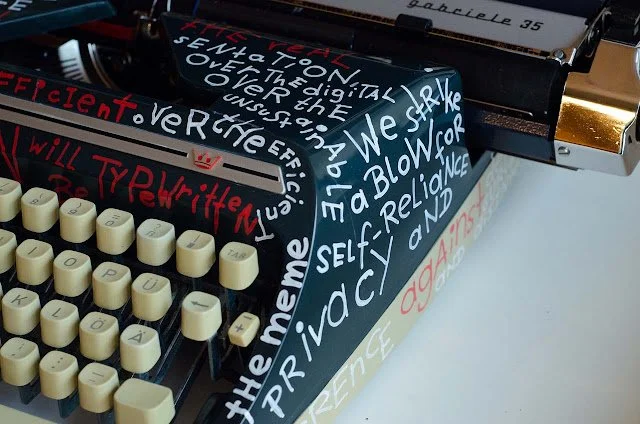 gabriele 35
THE REAL
SENTATION
OVER THE digiTAL
OVER thE
UNSUStAiNABLE
EFFiCiEnt
oVER tHE EFFiCiENT
WiLL TYPeWRittEN
BE
We StRiKe
a BLOW foR
SELf-RELiaNCE
PRiVacY aND
tHE meme
agAinSt
AND
RENCE
TAB
I O P Ü
K L Ö Ä